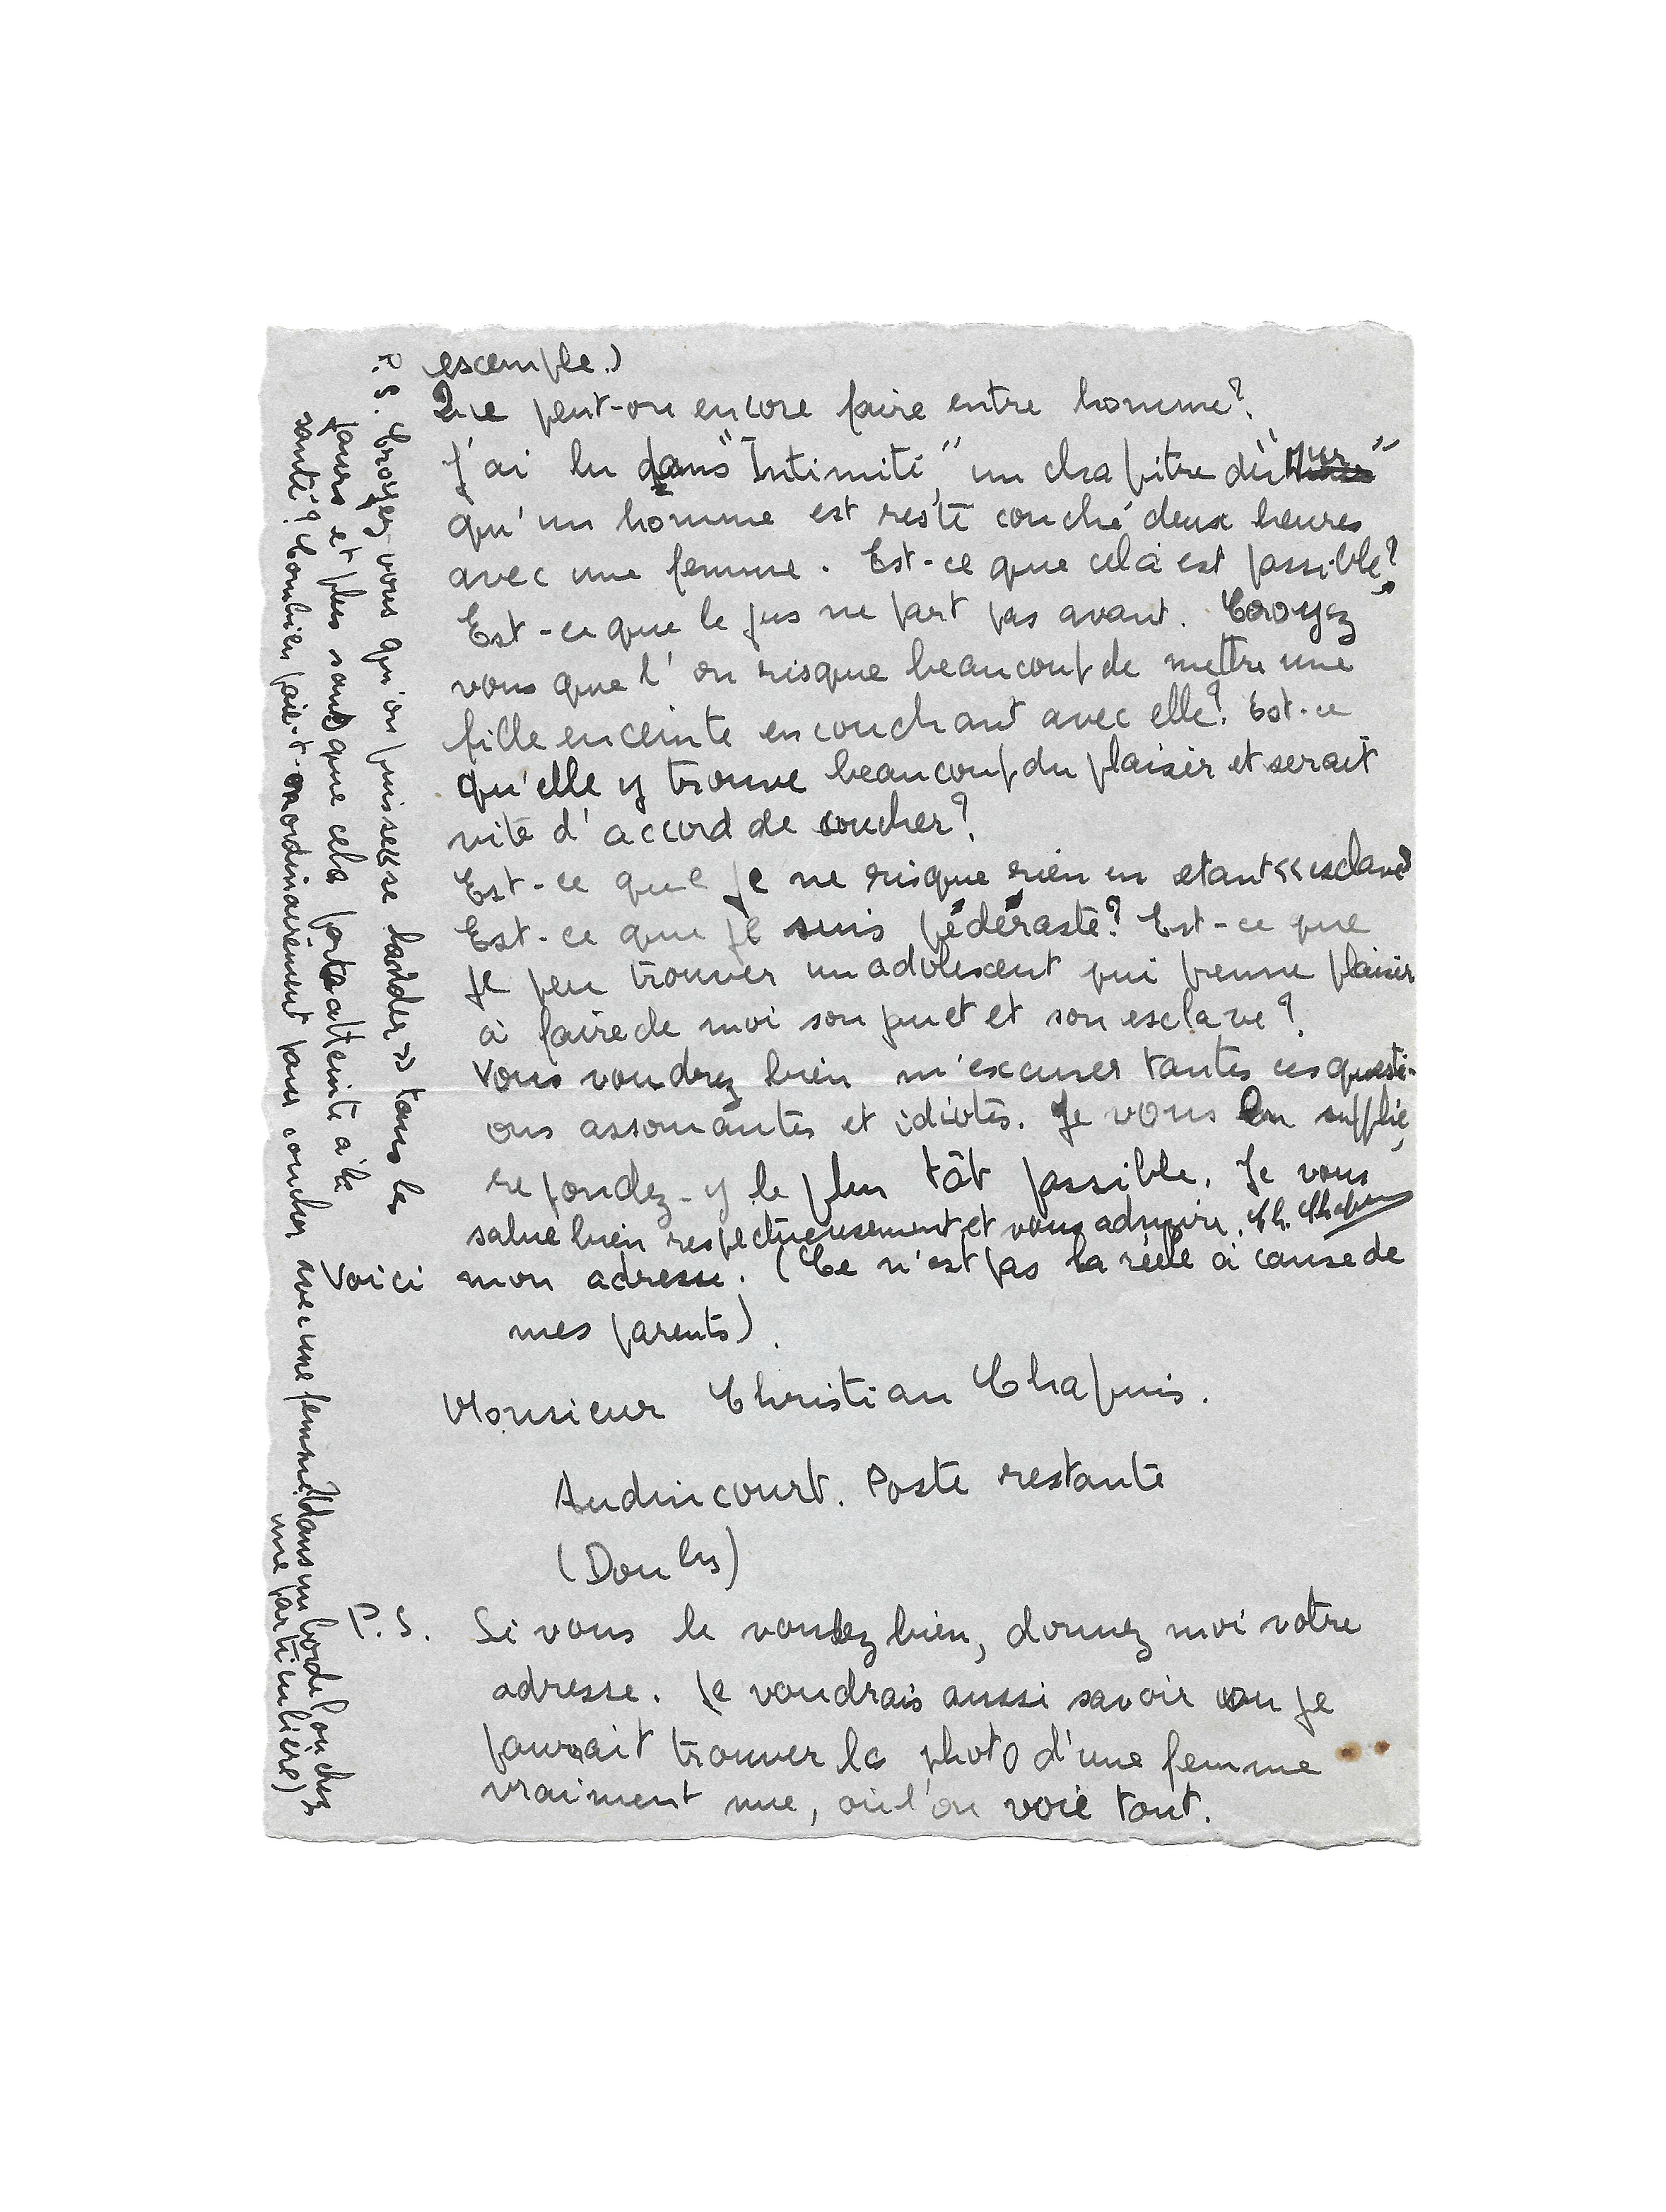 escemple.)
Que peut-on encore faire entre homme?
J'ai lu dans "Intimité," un chapitre du "Mur"
qu'un homme est resté couché deux heures
avec une femme. Est-ce que celà est possible?
Est-ce que le jus ne part pas avant. Croyez
vous que l'on risque beaucoup de mettre une
fille enceinte en couchant avec elle? Est-ce
qu'elle y trouve beaucoup du plaisir et serait
vite d'accord de coucher?
Est-ce que je ne risque rien en etant << esclave
Est-ce que je suis pédéraste? Est-ce que
je peu trouver un adolescent qui prenne plaisir
à faire de moi son puet et son esclave?
Vous voudrez bien m'escuser toutes ces questi-
ons assomantes et idiotes. Je vous en supplie,
repondez-y le plus tôt possible. Je vous
salue bien respectueusement et vous admire. Ch. Chapuis
Voici mon adresse. (Ce n'est pas la réelle à cause de
mes parents).
Monsieur Christian Chapuis.
Audincourt. Poste restante
(Doubs)
P.S. Si vous le voulez bien, donnez moi votre
adresse. Je voudrais aussi savoir ou je
pourrait trouver la photo d'une femme
vraiment nue, où l'on voie tout.
P.S. Croyez-vous qu'on puisse << se >> tous les
jours et plus sans que cela porte atteinte à la
santé? Combien faut-on ordinairement pour coucher avec une femme (dans un bordel ou chez
une particulière)